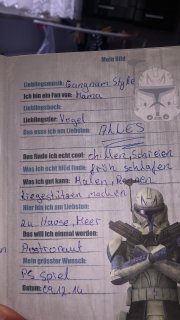 Mein Bild
Lieblingsmusik: Gangnam Style
Ich bin ein Fan von: Mama
Lieblingsbuch:
Lieblingstier: Vogel
Das esse ich am Liebsten:
ALLES
Das finde ich echt cool: chillen, Schreien
Was ich echt blöd finde: früh schlafen
Was ich gut kann: Malen, Rennen
Liegestützen machen
Hier bin ich am Liebsten:
zu Hause, Meer
Das will ich einmal werden:
Astronaut
Mein grösster Wunsch:
PS Spiel
Datum: 09.12.14